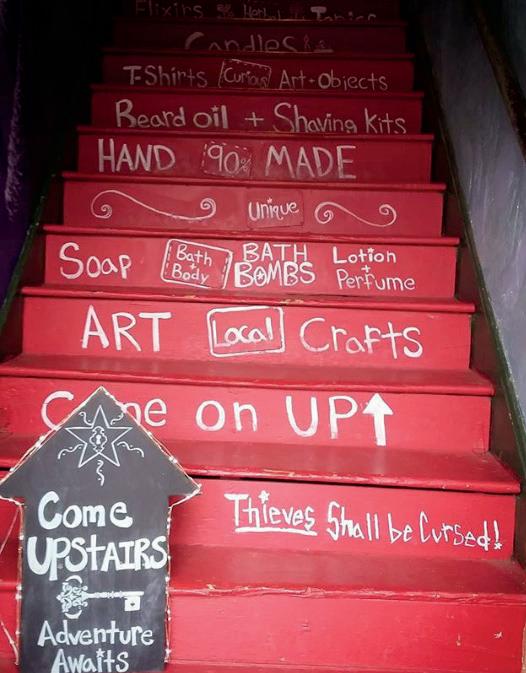 Elixirs Herbal Tonics
Candles
T-Shirts Curious Art + Objects
Beard oil + Shaving Kits
HAND 90% MADE
Unique
Soap Bath + Body BATH BOMBS Lotion + Perfume
ART Local Crafts
Come on UP
Thieves Shall be Cursed!
Come
UPSTAIRS
Adventure
Awaits